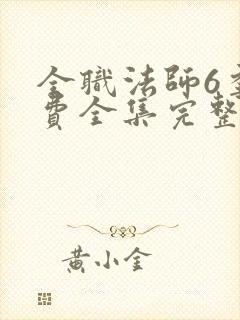 全職法師6
費全集完整
黃小金